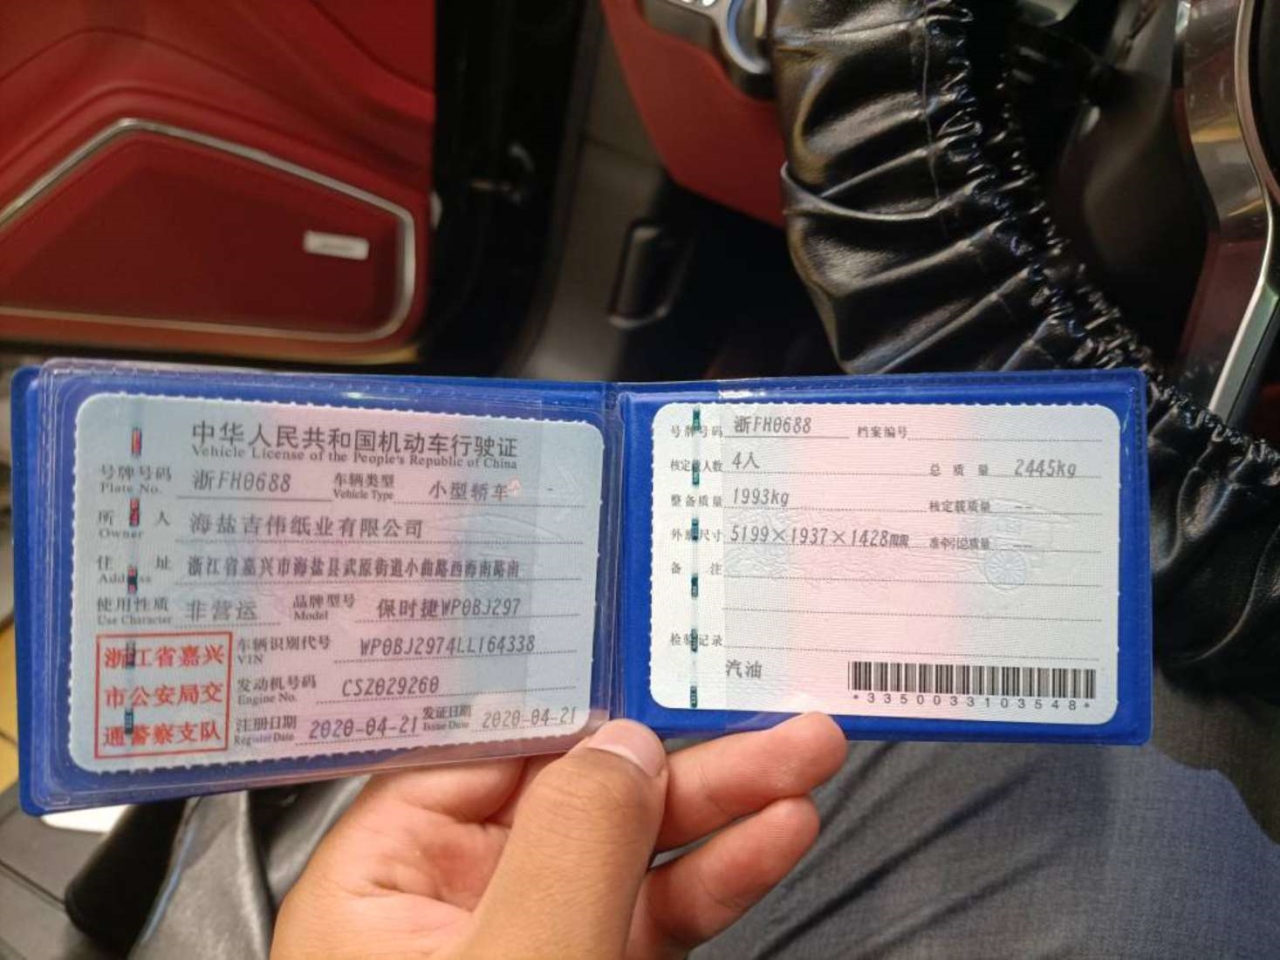 中华人民共和国机动车行驶证
Vehicle License of the People's Republic of China
号牌号码 浙FH0688 车辆类型 小型轿车
Plate No. Vehicle Type
所 人 海盐吉伟纸业有限公司
Owner
住 址 浙江省嘉兴市海盐县武原街道小曲路西海南路南
Address
使用性质 非营运 品牌型号 保时捷WP0BJ297
Use Character Model
车辆识别代号 WP0BJ2974LL164338
VIN
发动机号码 CSZ029260
Engine No.
注册日期 2020-04-21 发证日期 2020-04-21
Register Date Issue Date
浙江省嘉兴
市公安局交
通警察支队
号牌号码 浙FH0688 档案编号
核定载人数 4人 总质量 2445kg
整备质量 1993kg 核定载质量 --
外廓尺寸 5199×1937×1428 准牵引总质量 --
备 注
检验记录
汽油
*3350033103548*